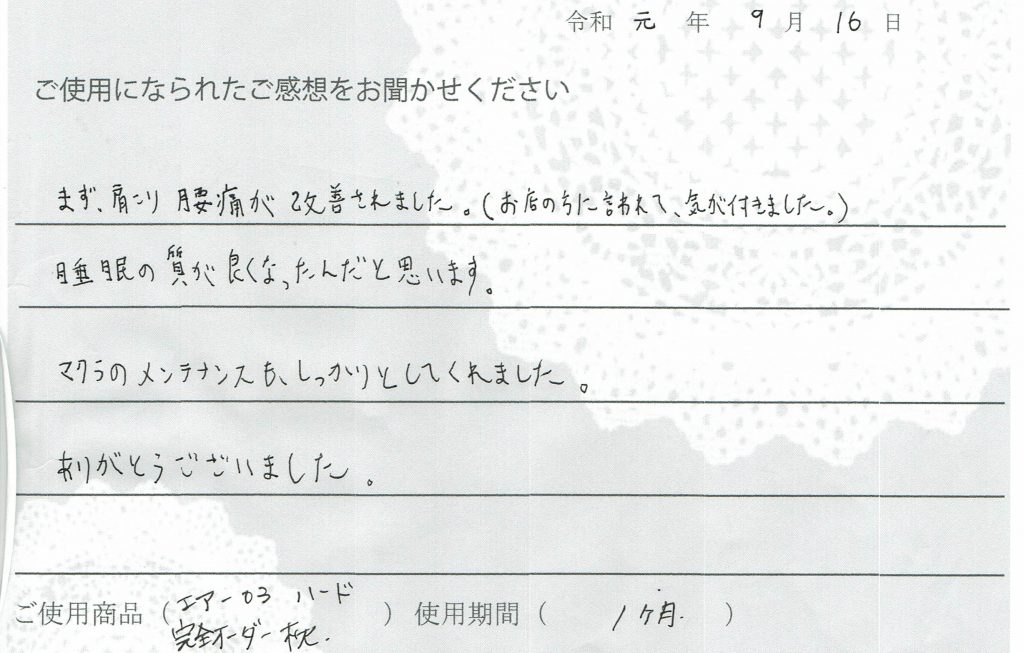 令和 元 年 9 月 16 日
ご使用になられたご感想をお聞かせください
まず、肩こり 腰痛が 改善されました。(お店の方に言われて、気が付きました。)
睡眠の 質が 良くなったんだと思います。
マクラのメンテナンスも、しっかりとしてくれました。
ありがとうございました。
ご使用商品 ( エアー03 ハード
完全オーダー枕. ) 使用期間 ( 1ヶ月. )